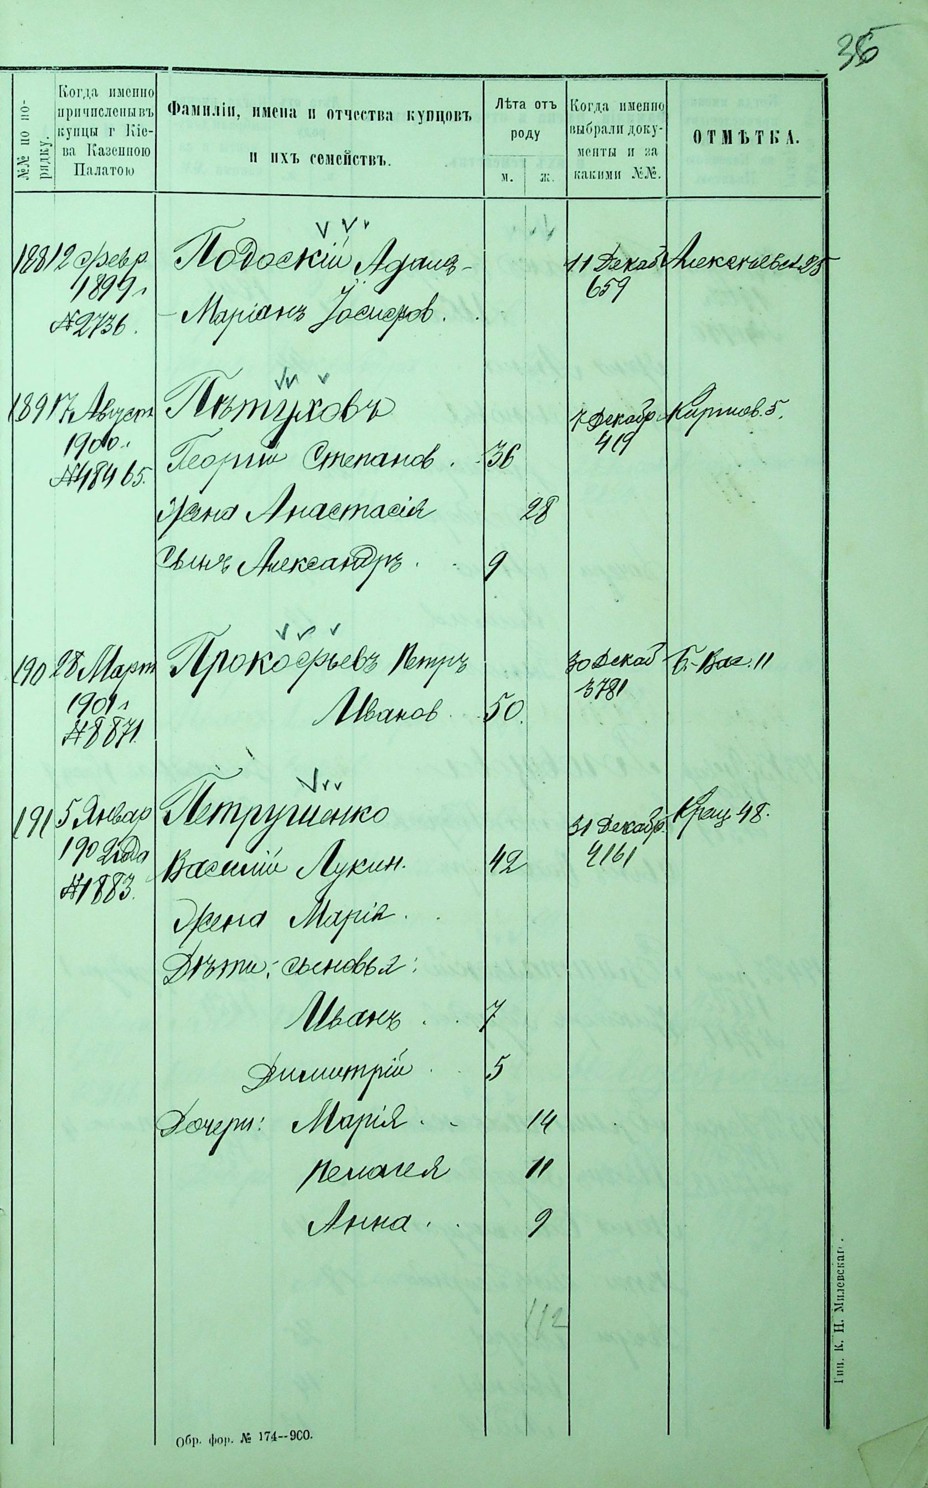 36
№№ по по-
рядку.
Когда именно
причислены въ
купцы г Кіе-
ва Казенною
Палатою
Фамиліи, имена и отчества купцовъ
и ихъ семействъ.
Лѣта отъ
роду
м. ж.
Когда именно
выбрали доку-
менты и за
какими №№.
ОТМѢТКА.
188 12 февр Подоскій Адамъ- 11 Декаб 25
1899 г 659
№2736. - Маріанъ Іосифов.
189 17 Август Пѣтуховъ 7 Декабр Кирилов. 5.
1900 г. 419
№48465. Георгій Степанов. 36
Жена Анастасія 28
сынъ Александръ 9
190 28 Март Прокофьевъ Петръ 30 Декаб Б.-Вас. 11
1901 г 3781
№8871. Иванов 50.
191 5 Январ Петрушенко 31 Декабр. Крещ 48.
1902 года 4161
№1883. Василій Лукин. 42
Жена Марія.
Дѣти: сыновья:
Иванъ 7
Димитрій 5
Дочери: Марія 14
Пелагея 11
Анна 9
112
Обр. фор. № 174—900.
Тип. К. Н. Милевскаг.